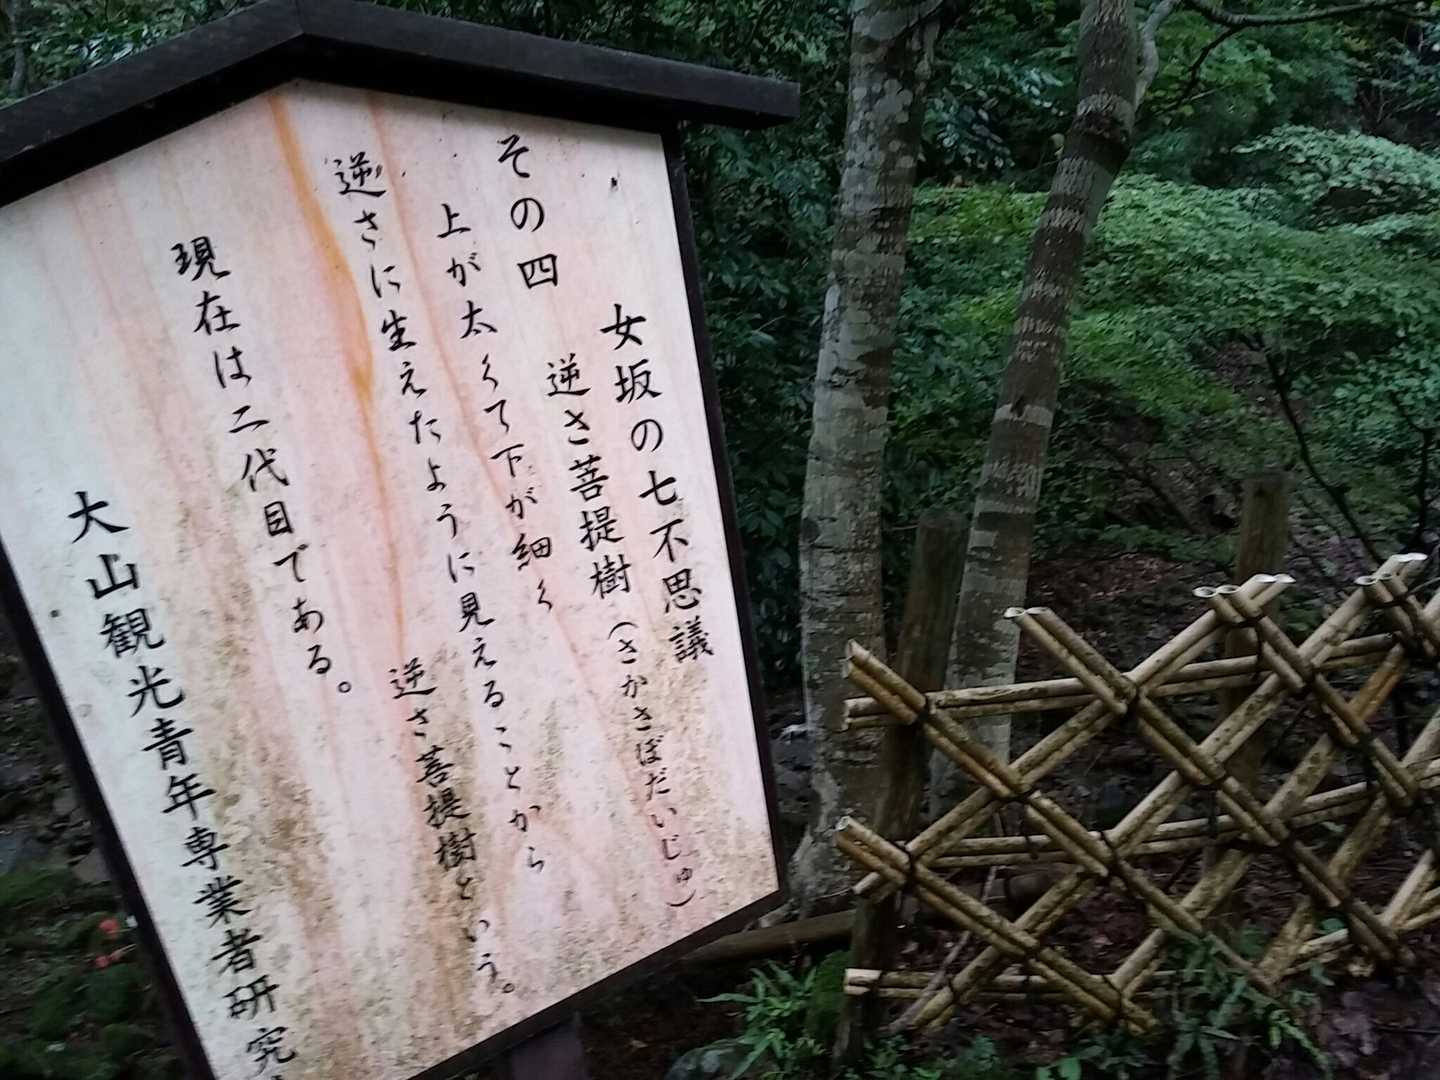 女坂の七不思議
その四 逆さ菩提樹（さかさぼだいじゅ）
上が太くて下が細く
逆さに生えたように見えることから
逆さ菩提樹という。
現在は二代目である。
大山観光青年専業者研究